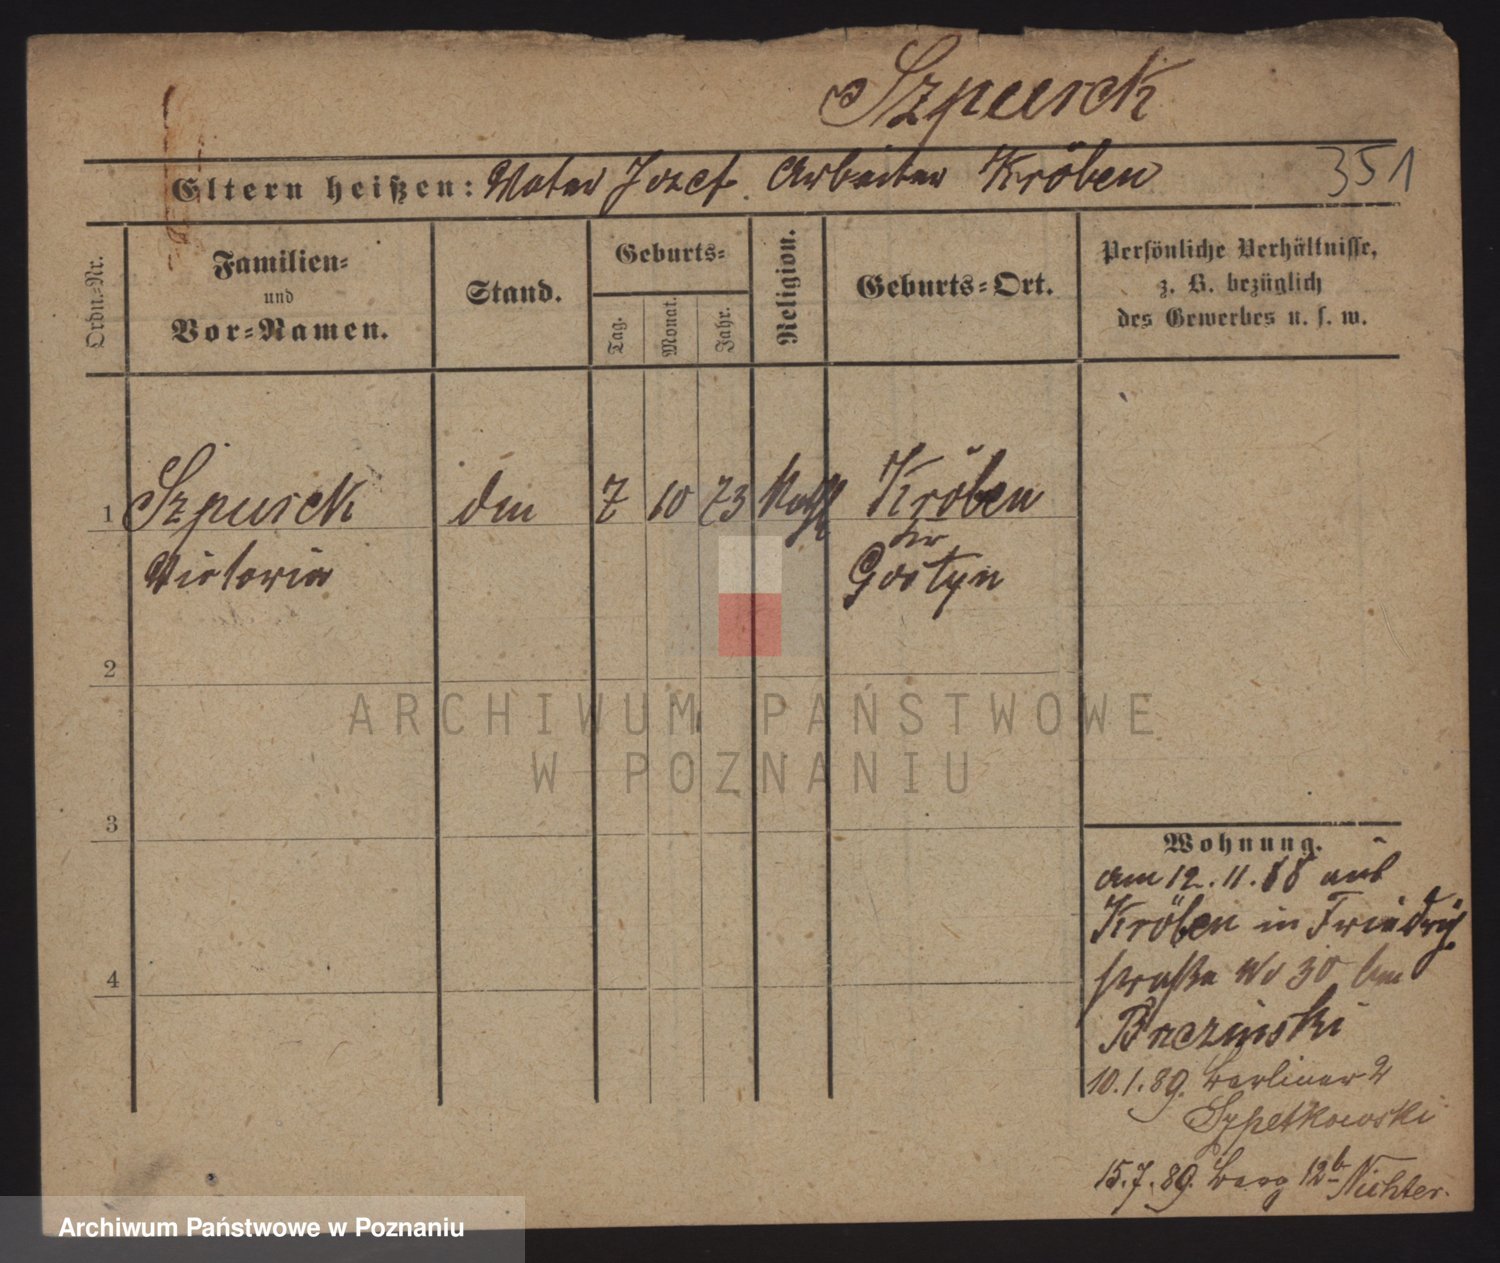 Szpurck
Eltern heißen: Vater Jozef. Arbeiter Kröben
351
Ordn.-Nr.
Familien-
und
Vor-Namen.
Stand.
Geburts-
Tag.
Monat.
Jahr.
Religion.
Geburts-Ort.
Persönliche Verhältnisse,
z. B. bezüglich
des Gewerbes u. s. w.
1 Szpurck 7 10 73 Kath Kröben
Victoria
Kr
Gostyn
2
3
4
Wohnung.
am 12.11.88 aus
Kröben in Friedrich
straße No 30 bei
10.1.89. Berliner 2
Szpetkowski
15.7.89. Berg 12b
ARCHIWUM PAŃSTWOWE
W POZNANIU
Archiwum Państwowe w Poznaniu